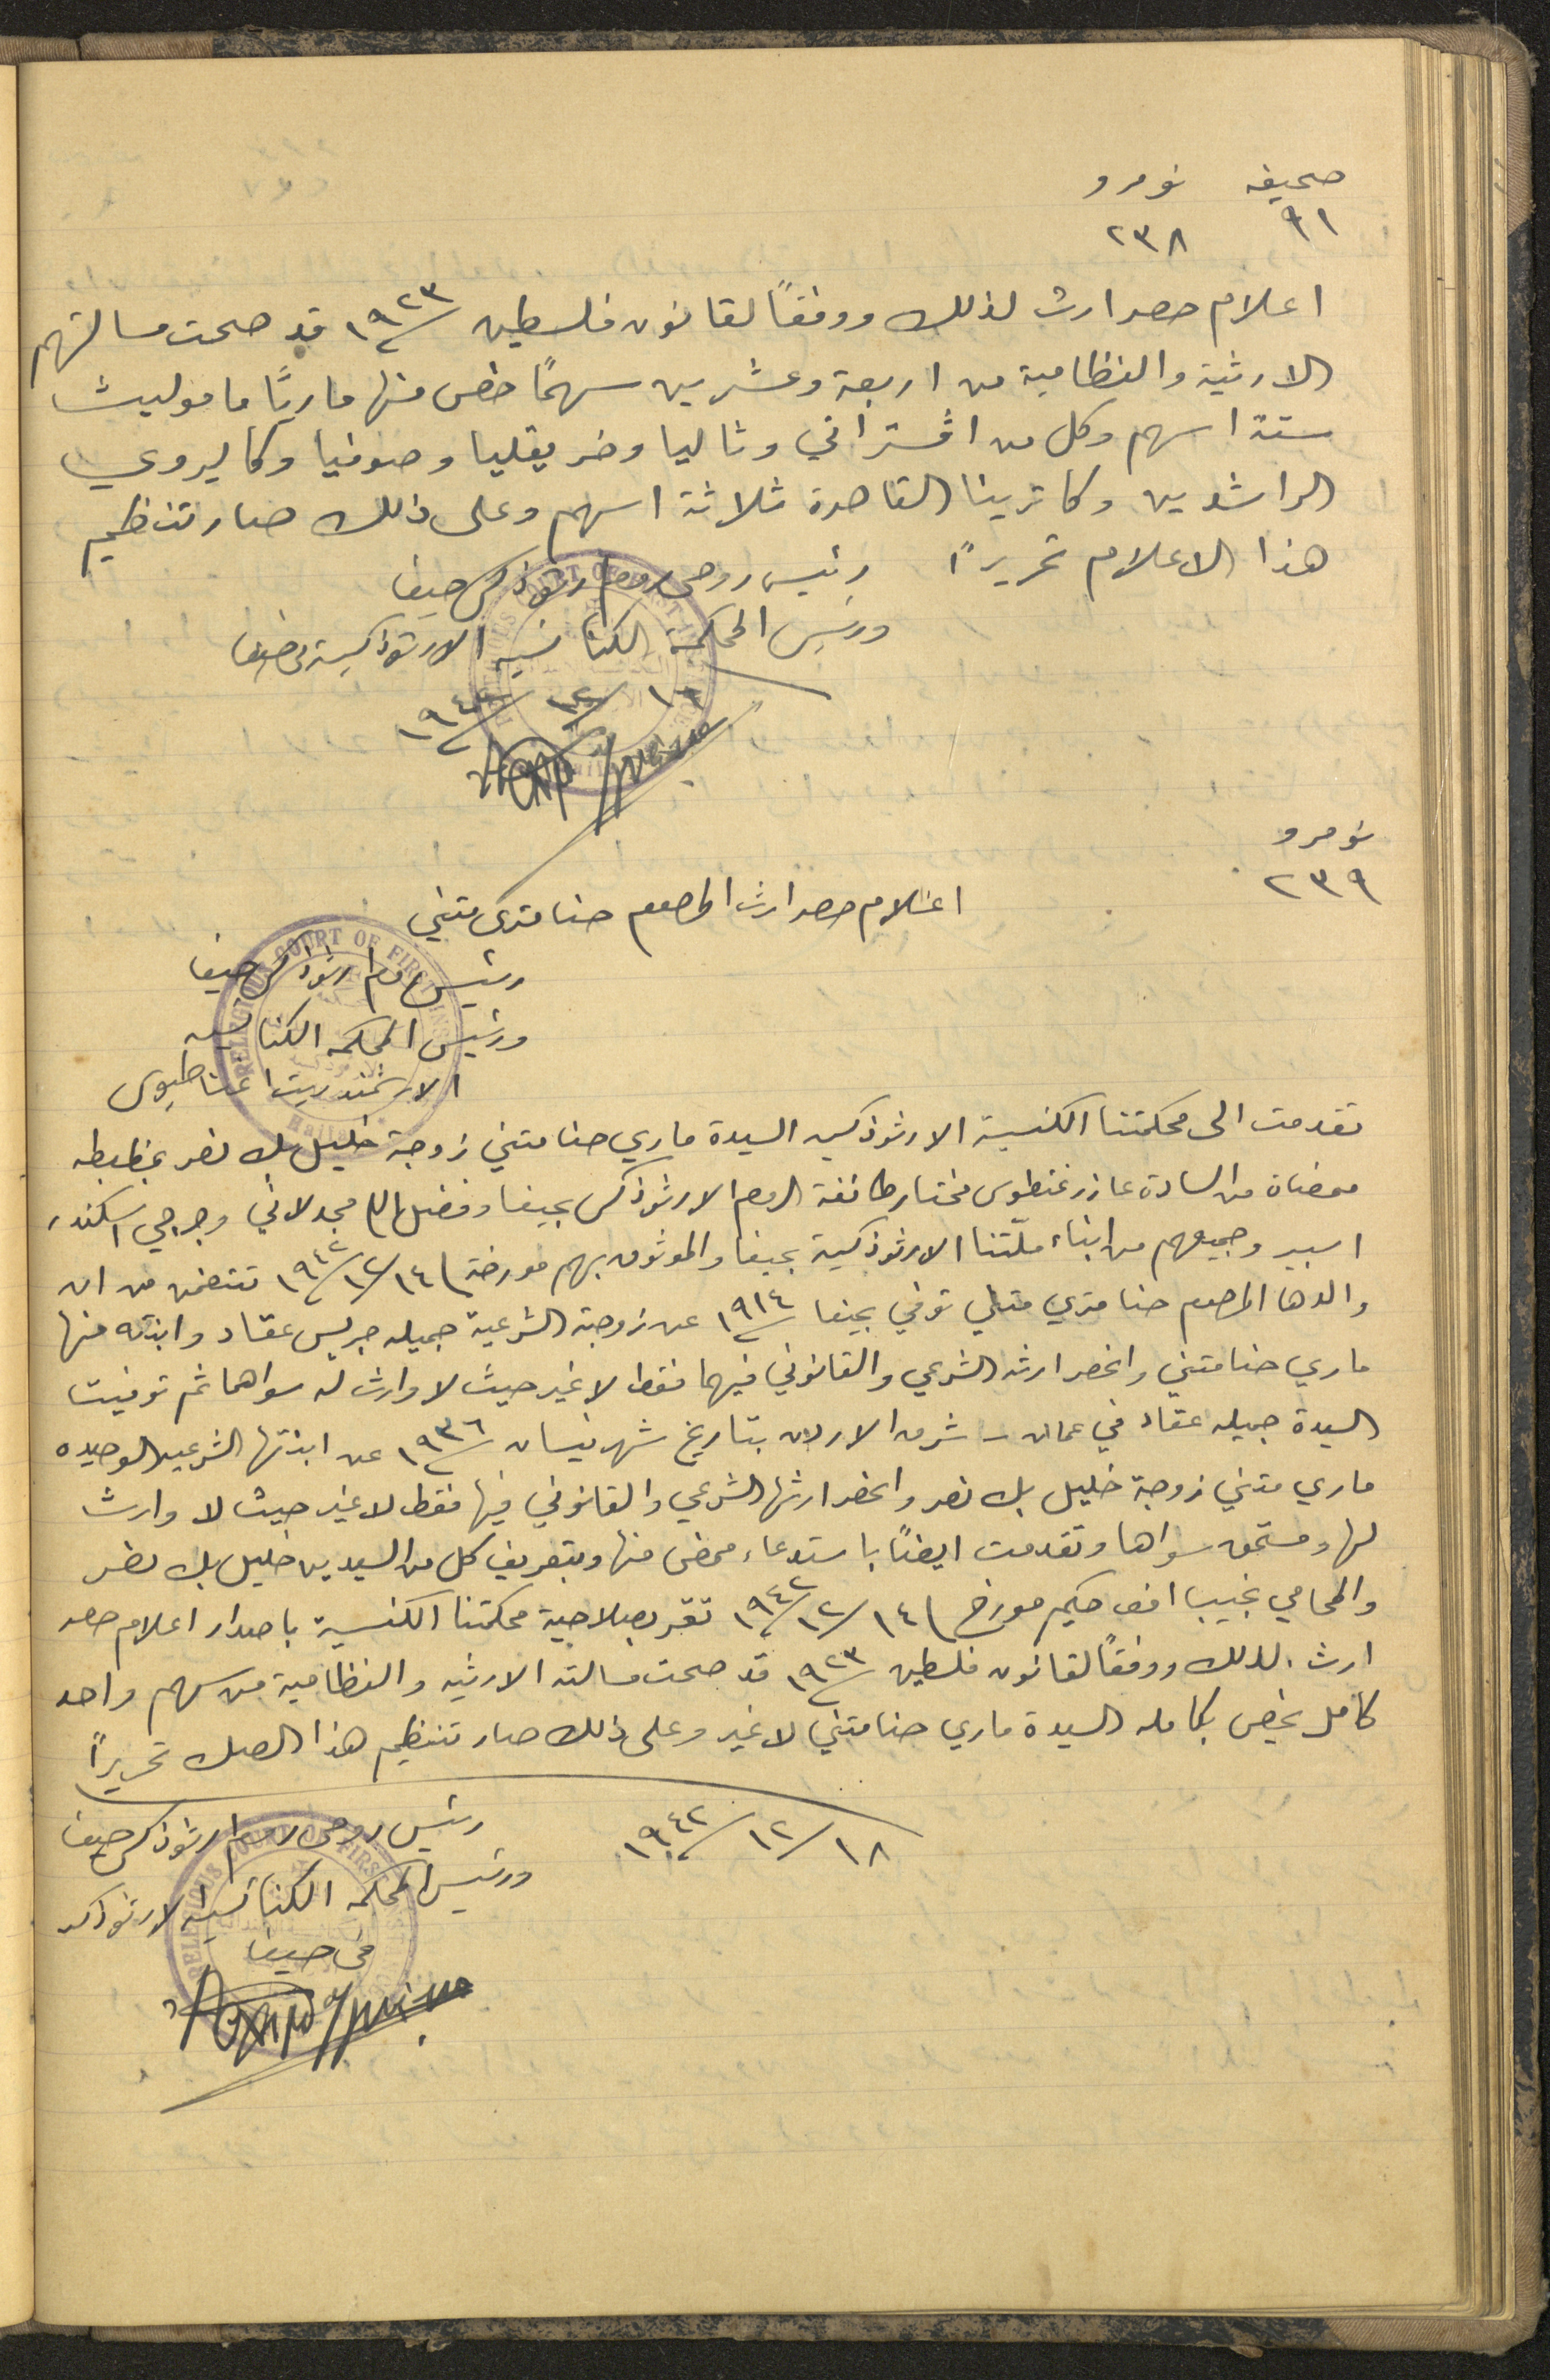 صحيفه نومرو
٩١ ٢٣٨
اعلام حصر ارث لذلك ووفقاً لقانون فلسطين ١٩٢٣ قد صحت مسالتهم
الارثية والنظامية من اربعة وعشرين سهمًا خص منها ماريًا ماموليث
ستة اسهم وكل من افستراتي وثاليا وخريقليا وصوفيا وكاليروي
الراشدين وكاترينا القاصرة ثلاثة اسهم وعلى ذلك صار تنظيم
هذا الاعلام تحريرًا
رئيس روحي روم ارثوذكس حيفا
ورئيس المحكمة الكنائسيه الارثوذكسية في حيفا
١٩٤٢
نومرو
٢٣٩
اعلام حصر ارث المرحوم حنا متري متني
رئيس روم ارثوذكس حيفا
ورئيس المحكمه الكنائسيه
الارشمندريت اغناطيوس
تقدمت الى محكمتنا الكنسية الارثوذكسيه السيدة ماري حنا متني زوجة خليل بك نصر بمظبطه
ممضاة من السادة عازر غنطوس مختار طائفة الروم الارثوذكس بحيفا وفضل الله مجدلاني وجرجي اسكندر
اسبر وجميعهم من ابناء ملّتنا الارثوذكسية بحيفا والموثوق بهم مورخة ١٤/١٢/١٩٤٢ تتضمن من ان
والدها المرحوم حنا متري متني توفي بحيفا ١٩١٤ عن زوجته الشرعية جميله جريس عقاد وابنته منها
ماري حنا متني وانحصر ارثه الشرعي والقانوني فيهما فقط لا غير حيث لا وارث له سواهما ثم توفيت
السيدة جميله عقاد في عمان - شرق الاردن بتاريخ شهر نيسان ١٩٣٦ عن ابنتها الشرعيه الوحيده
ماري متني زوجة خليل بك نصر وانحصر ارثها الشرعي والقانوني فيها فقط لا غير حيث لا وارث
لها ومستحق سواها وتقدمت ايضًا باستدعاء ممضى منها وبتعريف كل من السيدين خليل بك نصر
والمحامي نجيب افـ حكيم مورخ ١٤/١٢/١٩٤٢ تقر بصلاحية محكمتنا الكنسية باصدار اعلام حصر
ارث. لذلك ووفقًا لقانون فلسطين ١٩٢٣ قد صحت مسالته الارثيه والنظامية من سهم واحد
كامل يخص بكامله السيدة ماري حنا متني لا غير وعلى ذلك صار تنظيم هذا الصك تحريرًا
١٨/١٢/١٩٤٢
رئيس روحي روم ارثوذكس حيفا
ورئيس المحكمه الكنائسيه الارثوذكسـ
في حيفا